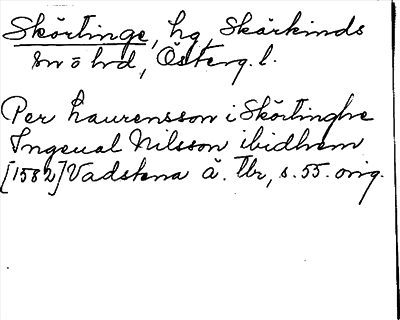 Skörtinge, hg, Skärkinds
sn o hd, Österg. l.
Per Laurensson i Skörtinghe
Ingeual Nilsson ibidhem
[1582] Vadstena ä. tbr, s. 55. orig.